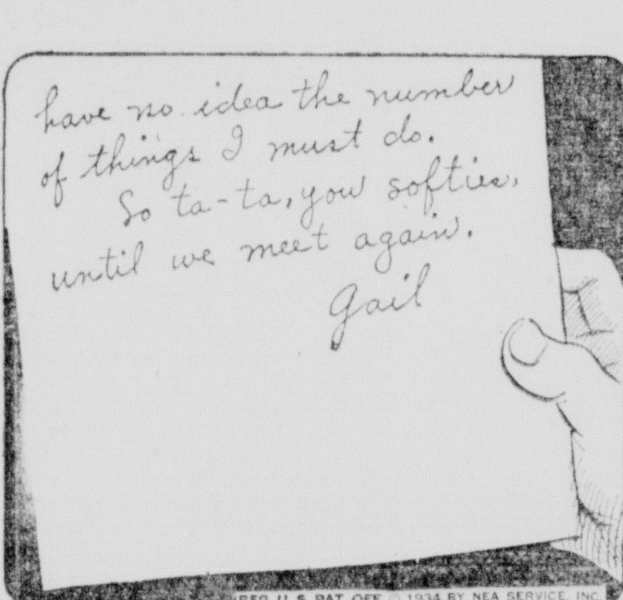 have no idea the number
of things I must do.
So ta-ta, you softies,
until we meet again.
Gail
REG. U. S. PAT. OFF. © 1934 BY NEA SERVICE, INC.